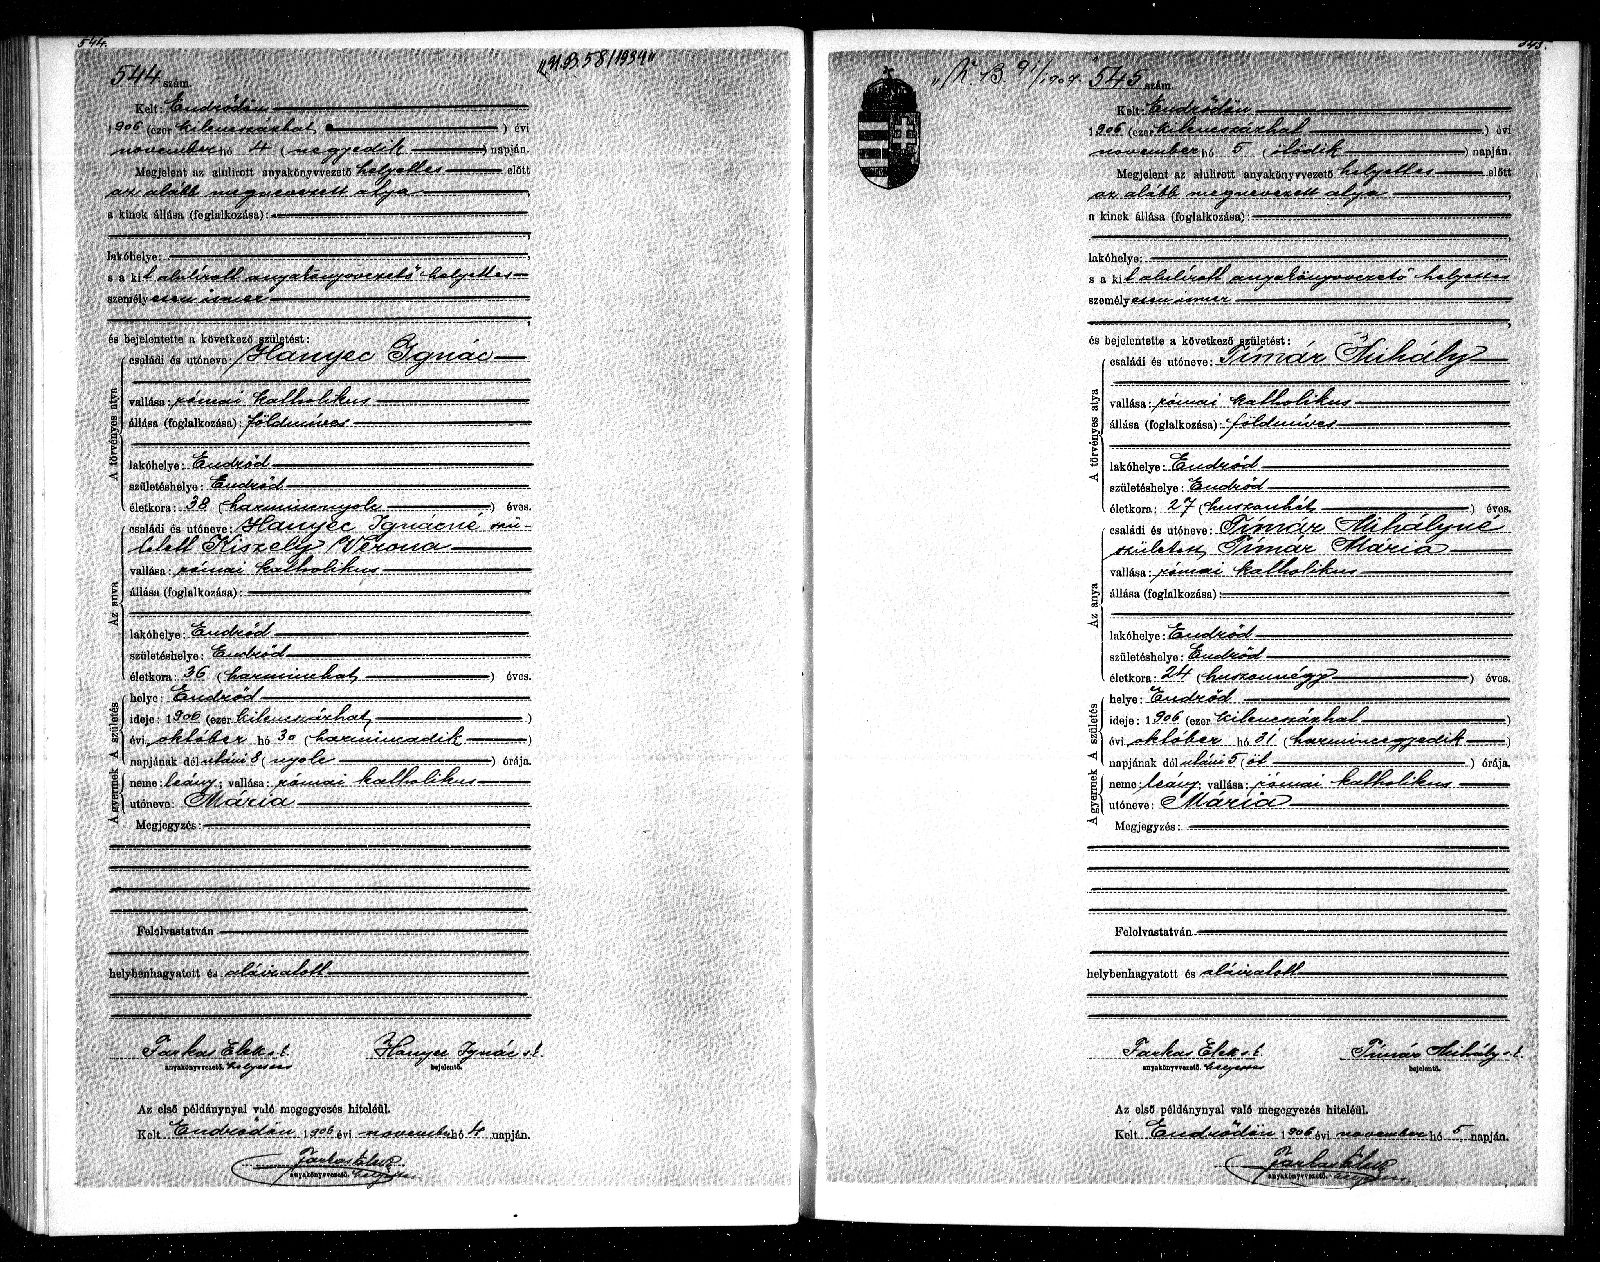 544.
"A.B.58/1939"
544 szám.
Kelt: Endrődön
1906 (ezer kilencszázhat) évi
november hó 4 (negyedik) napján.
Megjelent az alulirott anyakönyvvezető helyettes előtt
az alább megnevezett atya
a kinek állása (foglalkozása):
lakóhelye:
s a kit alulírott anyakönyvvezető helyettes
személyesen ismer
és bejelentette a következő születést:
A törvényes atya
családi és utóneve: Hanyec Ignác
vallása: római katholikus
állása (foglalkozása): földmíves
lakóhelye: Endrőd
születéshelye: Endrőd
életkora: 38 (harmincnyolc) éves.
Az anya
családi és utóneve: Hanyec Ignácné szü-
letett Kiszely Verona
vallása: római katholikus
állása (foglalkozása):
lakóhelye: Endrőd
születéshelye: Endrőd
életkora: 36 (harminchat) éves.
A születés
helye: Endrőd
ideje: 1906 (ezer kilencszázhat)
évi október hó 30 (harmincadik)
napjának dél utáni 8 (nyolc) órája.
A gyermek
neme: leány; vallása: római katholikus
utóneve: Mária
Megjegyzés:
Felolvastatván
helybenhagyatott és aláíratott
Farkas Elek s. k. Hanyec Ignác s. k.
anyakönyvvezető. helyettes bejelentő.
Az első példánynyal való megegyezés hiteléül.
Kelt Endrődön 1906 évi november hó 4 napján.
Farkas Elek
anyakönyvvezető. helyettes
545.
545 szám.
Kelt: Endrődön
1906 (ezer kilencszázhat) évi
november hó 5 (ötödik) napján.
Megjelent az alulirott anyakönyvvezető helyettes előtt
az alább megnevezett atya
a kinek állása (foglalkozása):
lakóhelye:
s a kit alulírott anyakönyvvezető helyettes
személyesen ismer
és bejelentette a következő születést:
A törvényes atya
családi és utóneve: Tímár Mihály
vallása: római katholikus
állása (foglalkozása): földmíves
lakóhelye: Endrőd
születéshelye: Endrőd
életkora: 27 (huszonhét) éves.
Az anya
családi és utóneve: Tímár Mihályné
született Tímár Mária
vallása: római katholikus
állása (foglalkozása):
lakóhelye: Endrőd
születéshelye: Endrőd
életkora: 24 (huszonnégy) éves.
A születés
helye: Endrőd
ideje: 1906 (ezer kilencszázhat)
évi október hó 31 (harmincegyedik)
napjának dél utáni 5 (öt) órája.
A gyermek
neme: leány; vallása: római katholikus
utóneve: Mária
Megjegyzés:
Felolvastatván
helybenhagyatott és aláíratott
Farkas Elek s. k. Tímár Mihály s. k.
anyakönyvvezető. helyettes bejelentő.
Az első példánynyal való megegyezés hiteléül.
Kelt Endrődön 1906 évi november hó 5 napján.
Farkas Elek
anyakönyvvezető. helyettes